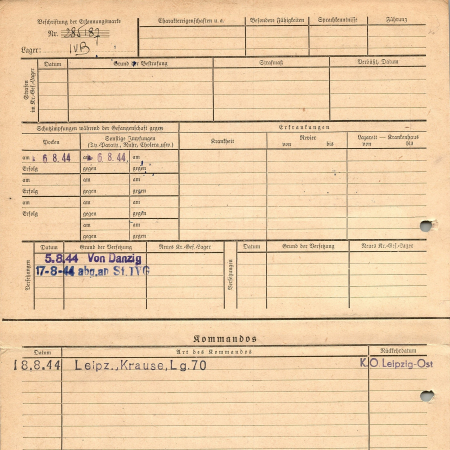 Beschriftung der Erkennungsmarke
Nr. 286187
Lager: IVB
Charaktereigenschaften u.a.
Besondere Fähigkeiten
Sprachkenntnisse
Führung
Strafen
in Kr.-Gef.-Lager
Datum
Grund der Bestrafung
Strafmaß
Verbüßt, Datum
Schutzimpfungen während der Gefangenschaft gegen
Erkrankungen
Pocken
Sonstige Impfungen
(Ty.-Paraty., Ruhr, Cholera usw.)
Krankheit
Revier
von bis
Lazarett — Krankenhaus
von bis
am 6.8.44 am 6.8.44 am
Erfolg gegen gegen
am am am
Erfolg gegen gegen
am am am
Erfolg gegen gegen
am am
gegen gegen
Versetzungen
Datum Grund der Versetzung Neues Kr.-Gef.-Lager
5.8.44 Von Danzig
17-8-44 abg.an St.IVG
Versetzungen
Datum Grund der Versetzung Neues Kr.-Gef.-Lager
Kommandos
Datum Art des Kommandos Rückkehrdatum
18.8.44 Leipz.,Krause,Lg.70 K.O. Leipzig-Ost